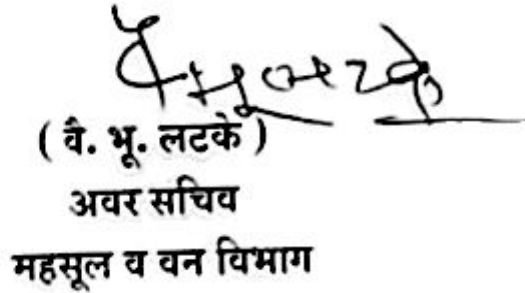 वै भू लटके
( वै. भू. लटके )
अवर सचिव
महसूल व वन विभाग